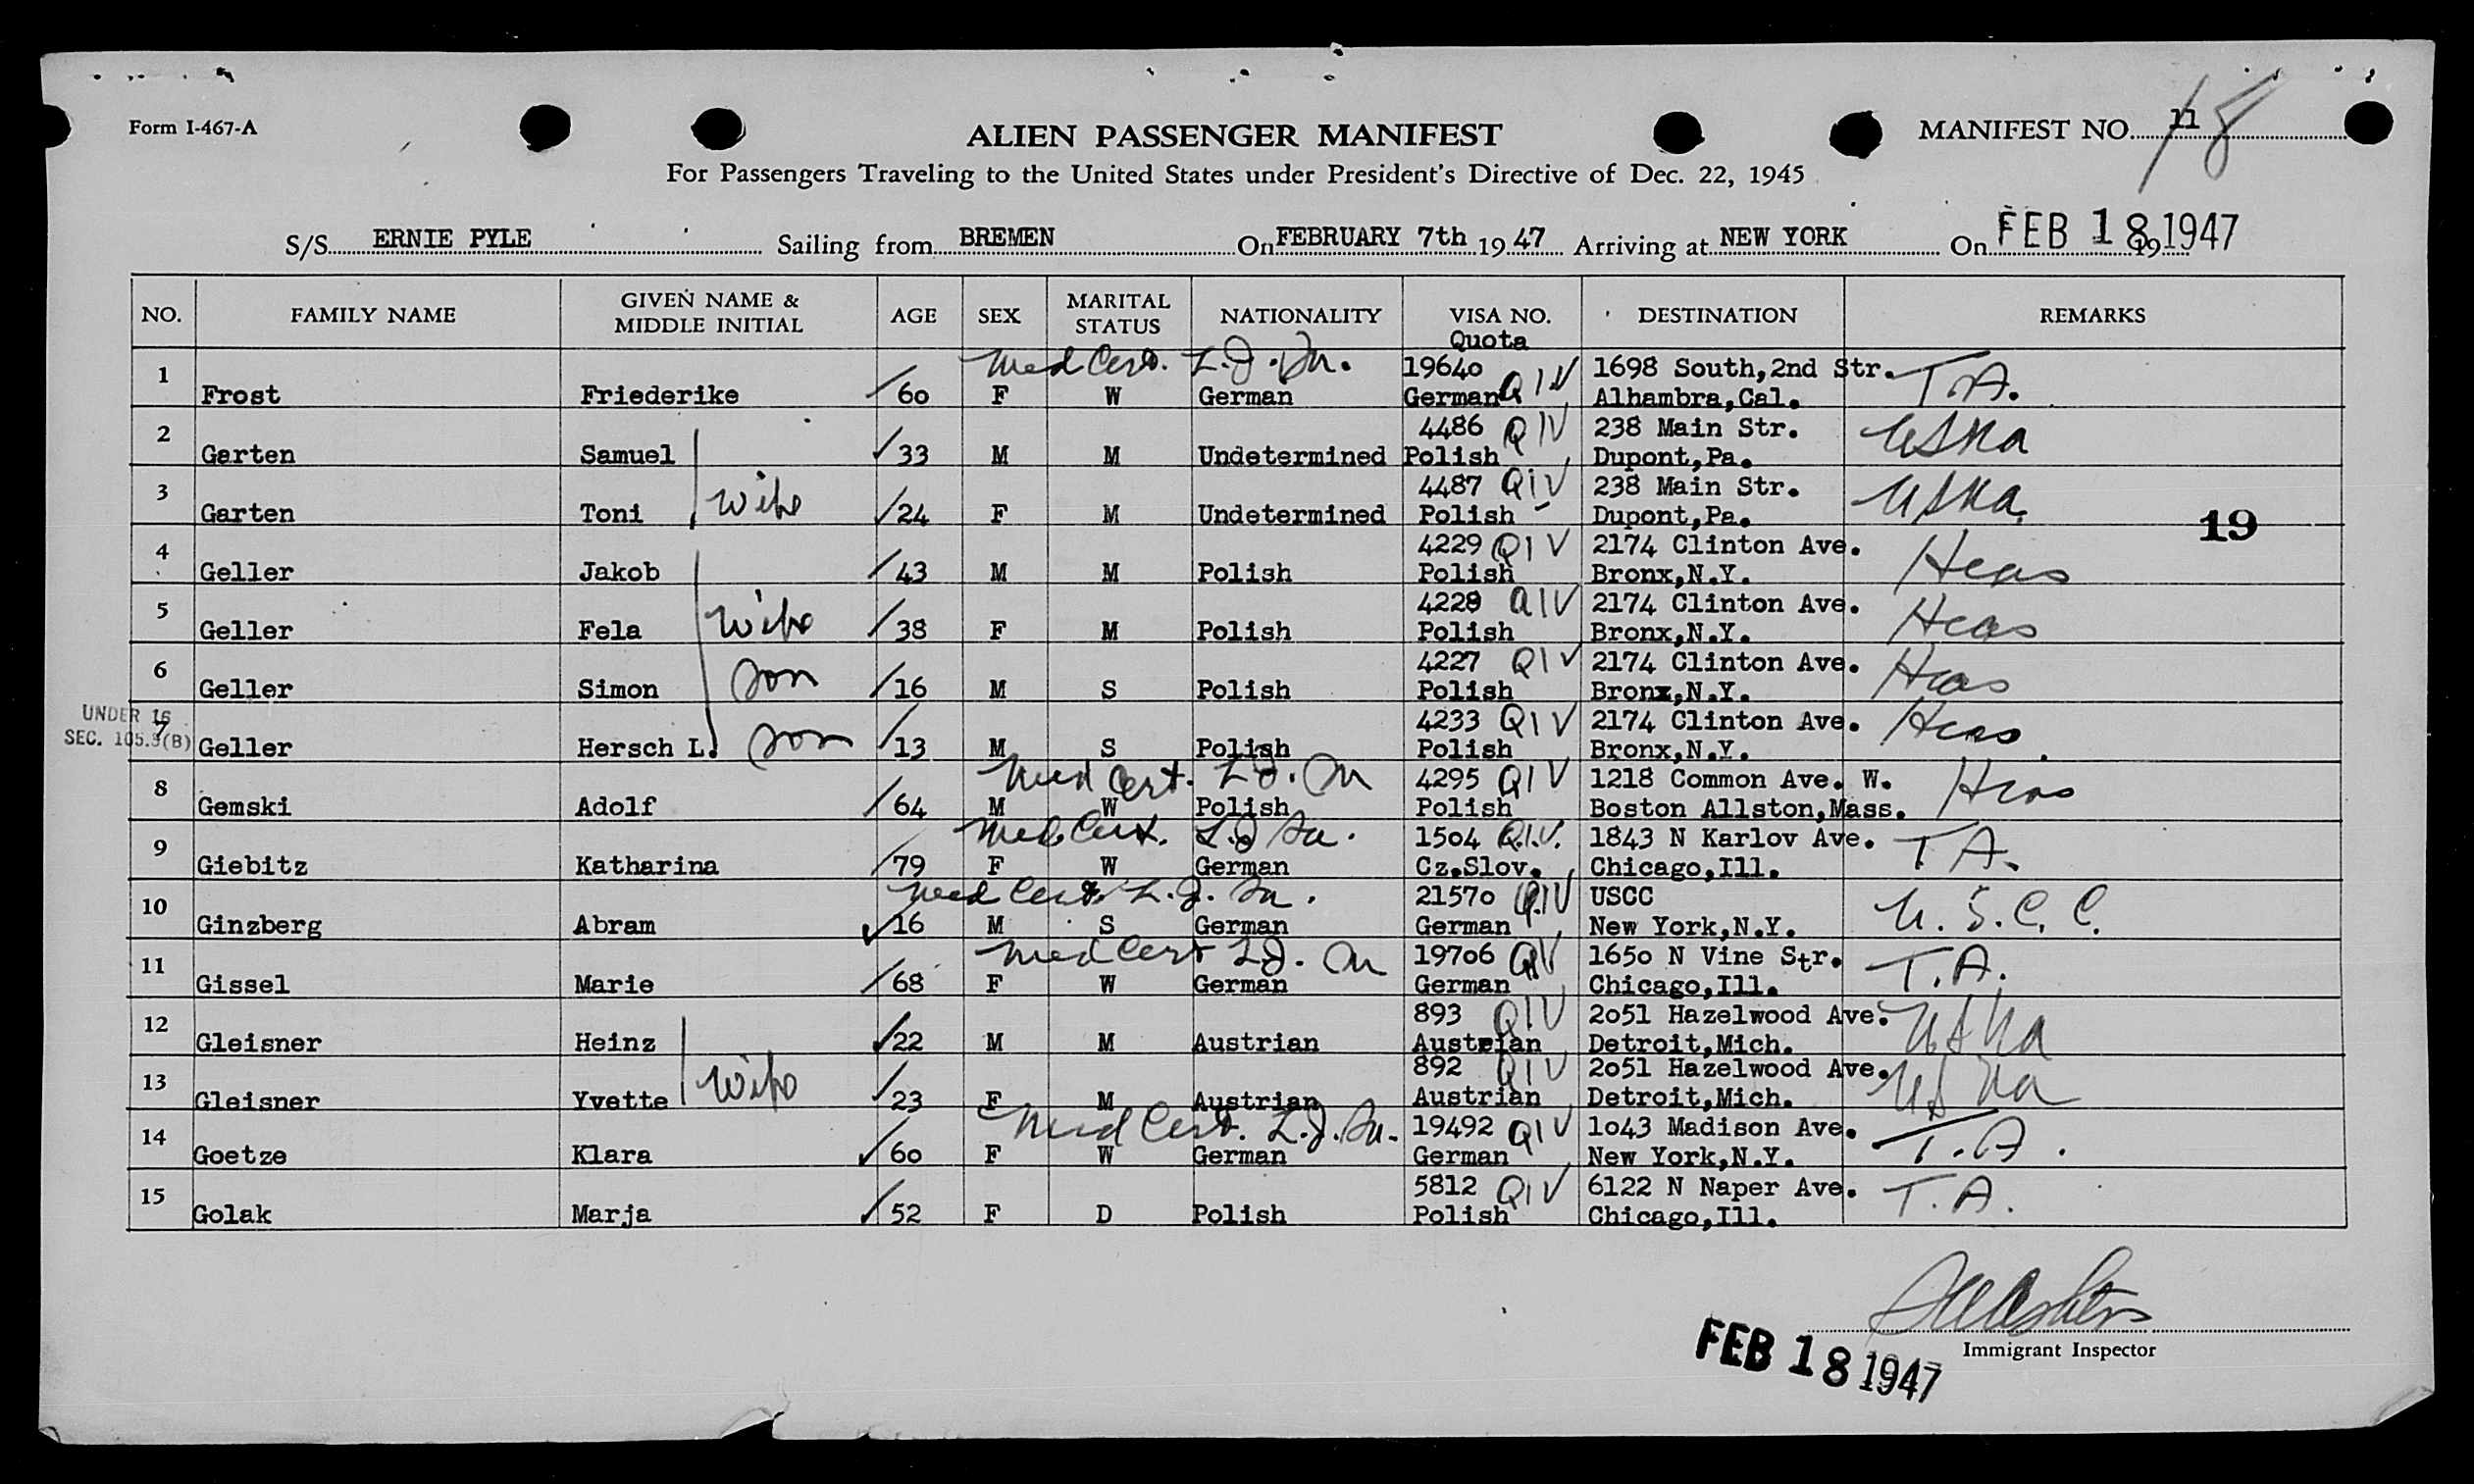 Form I-467-A
ALIEN PASSENGER MANIFEST
MANIFEST NO. 11
For Passengers Traveling to the United States under President's Directive of Dec. 22, 1945
S/S ERNIE PYLE Sailing from BREMEN On FEBRUARY 7th 19 47 Arriving at NEW YORK On FEB 18 1947 19
NO. FAMILY NAME GIVEN NAME & MIDDLE INITIAL AGE SEX MARITAL STATUS NATIONALITY VISA NO. Quota DESTINATION REMARKS
Med Cert. 19640 1698 South,2nd Str.
1 Frost Friederike 60 F W German German QIV Alhambra,Cal. T.A.
4486 QIV 238 Main Str.
2 Garten Samuel 33 M M Undetermined Polish Dupont,Pa. USNA
4487 QIV 238 Main Str.
3 Garten Toni wife 24 F M Undetermined Polish Dupont,Pa. USNA
19
4229 QIV 2174 Clinton Ave.
4 Geller Jakob 43 M M Polish Polish Bronx,N.Y. Heas
4228 QIV 2174 Clinton Ave.
5 Geller Fela wife 38 F M Polish Polish Bronx,N.Y. Heas
4227 QIV 2174 Clinton Ave.
6 Geller Simon son 16 M S Polish Polish Bronx,N.Y. Heas
UNDER 16
SEC. 105.3(B)
4233 QIV 2174 Clinton Ave.
7 Geller Hersch L. son 13 M S Polish Polish Bronx,N.Y. Heas
Med Cert. 4295 QIV 1218 Common Ave. W.
8 Gemski Adolf 64 M W Polish Polish Boston Allston,Mass. Heas
Med Cert. 1504 Q.I.V. 1843 N Karlov Ave.
9 Giebitz Katharina 79 F W German Cz.Slov. Chicago,Ill. T.A.
Med Cert. 21570 QIV USCC
10 Ginzberg Abram 16 M S German German New York,N.Y. U.S.C.C.
Med Cert 19706 QIV 1650 N Vine Str.
11 Gissel Marie 68 F W German German Chicago,Ill. T.A.
893 QIV 2051 Hazelwood Ave.
12 Gleisner Heinz 22 M M Austrian Austrian Detroit,Mich. USNA
892 QIV 2051 Hazelwood Ave.
13 Gleisner Yvette wife 23 F M Austrian Austrian Detroit,Mich. USNA
Med Cert. 19492 QIV 1043 Madison Ave.
14 Goetze Klara 60 F W German German New York,N.Y. T.A.
5812 QIV 6122 N Naper Ave.
15 Golak Marja 52 F D Polish Polish Chicago,Ill. T.A.
Immigrant Inspector
FEB 18 1947